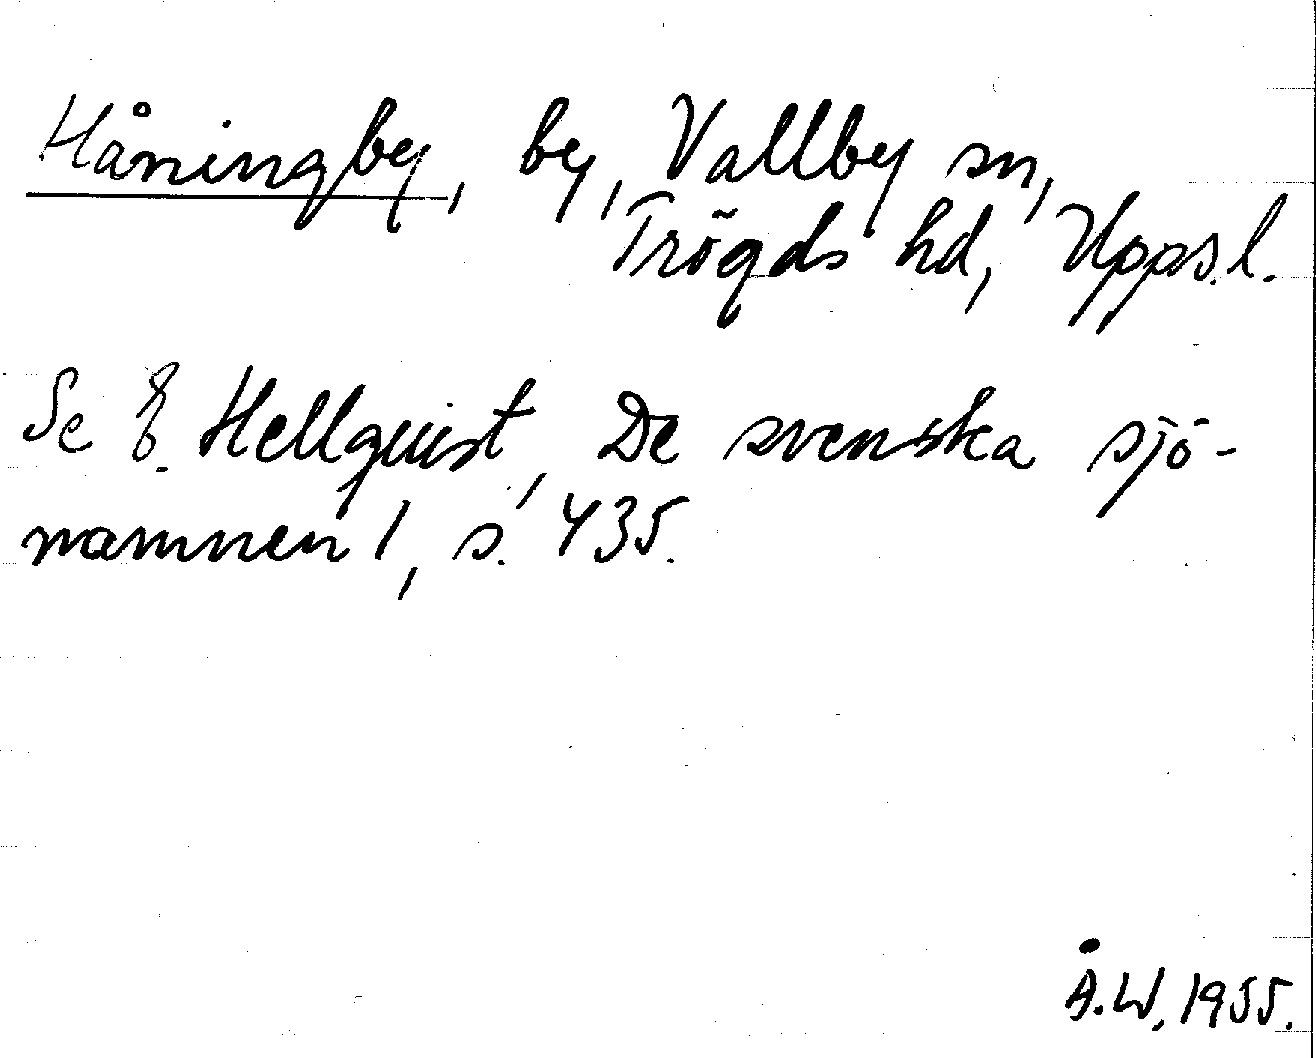 Håningby, by, Vallby sn,
Trögds hd, Upps.l.
Se E. Hellquist, De svenska sjö-
namnen 1, s. 435.
Å.W. 1955.